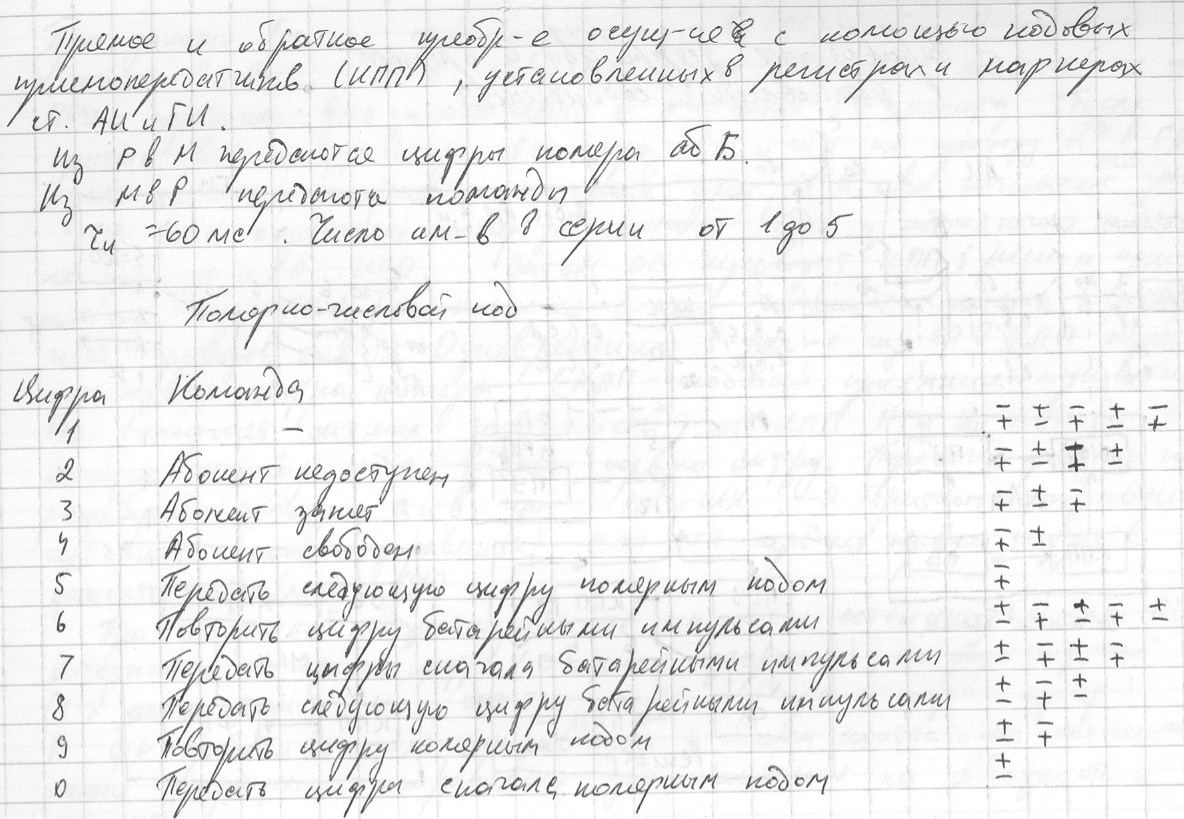 Прямое и обратное преобр-е осущ-ся с помощью кодовых
приемопередатчиков (КПП), установленных в регистрах и маркерах
ст. АИ и ГИ.
Из Р в М передаются цифры номера аб Б.
Из М в Р передаются команды
τи =60 мс. Число им-в в серии от 1 до 5
Полярно-числовой код
Цифра Команда
1 – -/+ +/- -/+ +/- -/+
2 Абонент недоступен -/+ +/- -/+ +/-
3 Абонент занят -/+ +/- -/+
4 Абонент свободен -/+ +/-
5 Передать следующую цифру полярным кодом -/+
6 Повторить цифру батарейными импульсами +/- -/+ +/- -/+ +/-
7 Передать цифры сначала батарейными импульсами +/- -/+ +/- -/+
8 Передать следующую цифру батарейными импульсами +/- -/+ +/-
9 Повторить цифру полярным кодом +/- -/+
0 Передать цифры сначала полярным кодом +/-